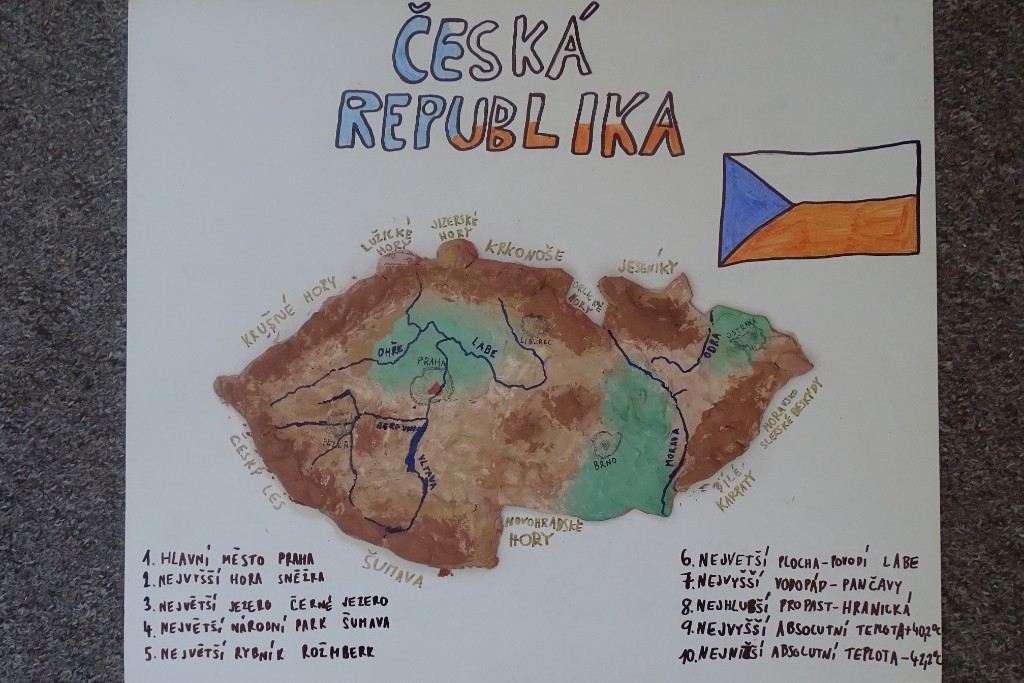 ČESKÁ
REPUBLIKA
LUŽICKÉ
HORY
JIZERSKÉ
HORY
KRKONOŠE
JESENÍKY
KRUŠNÉ HORY
HORY
LIBEREC
OSTRAVA
ODRA
OHŘE
LABE
PRAHA
BEROUNKA
PLZEŇ
VLTAVA
BRNO
MORAVA
MORAVSKO
SLEZSKÉ BESKYDY
BÍLÉ
KARPATY
ČESKÝ LES
NOVOHRADSKÉ
HORY
ŠUMAVA
1. HLAVNÍ MĚSTO PRAHA
2. NEJVYŠŠÍ HORA SNĚŽKA
3. NEJVĚTŠÍ JEZERO ČERNÉ JEZERO
4. NEJVĚTŠÍ NÁRODNÍ PARK ŠUMAVA
5. NEJVĚTŠÍ RYBNÍK ROŽMBERK
6. NEJVETŠÍ PLOCHA-POVODÍ LABE
7. NEJVYŠŠÍ VODOPÁD-PANČAVY
8. NEJHLUBŠÍ PROPAST-HRANICKÁ
9. NEJVYŠŠÍ ABSOLUTNÍ TEPLOTA+40,2°C
10. NEJNIŽŠÍ ABSOLUTNÍ TEPLOTA-42,2°C